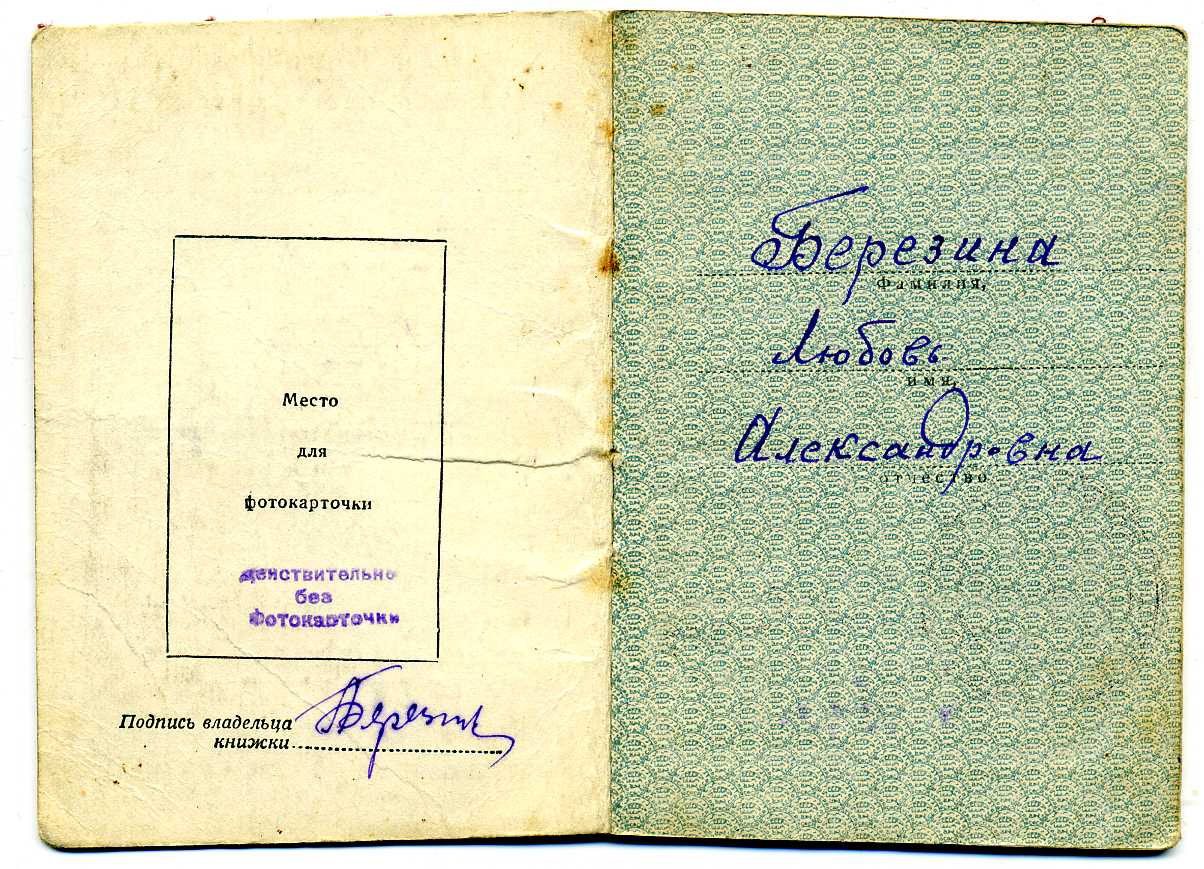 Место
для
фотокарточки
действительно
без
Фотокарточки
Подпись владельца
книжки
Березин
Березина
Фамилия,
Любовь
имя,
Александровна
отчество